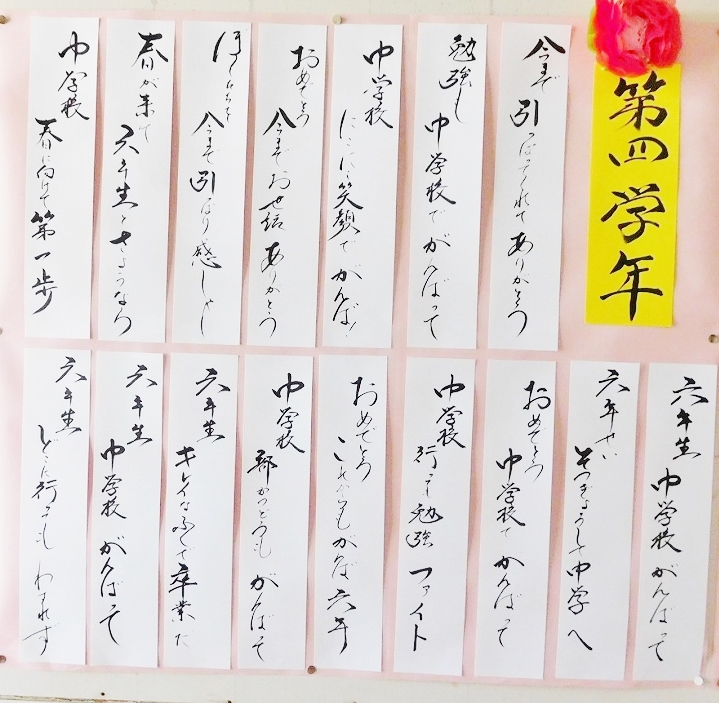 第四学年
今まで 引っぱってくれて ありがとう
勉強し 中学校で がんばって
中学校 にこにこ笑顔で がんば!
おめでとう 今までお世話 ありがとう
今まで引っぱり 感しゃし
春が来て 六年生と さようなら
中学校 春に向けて 第一歩
六年生 中学校 がんばって
六年せい そつぎょうして 中学へ
おめでとう 中学校で がんばって
中学校 行っても勉強 ファイト
おめでとう これからもがんば 六年
中学校 部かつどうも がんばって
六年生 キレイなふくで 卒業だ
六年生 中学校 がんばって
六年生 どこに行っても わすれず